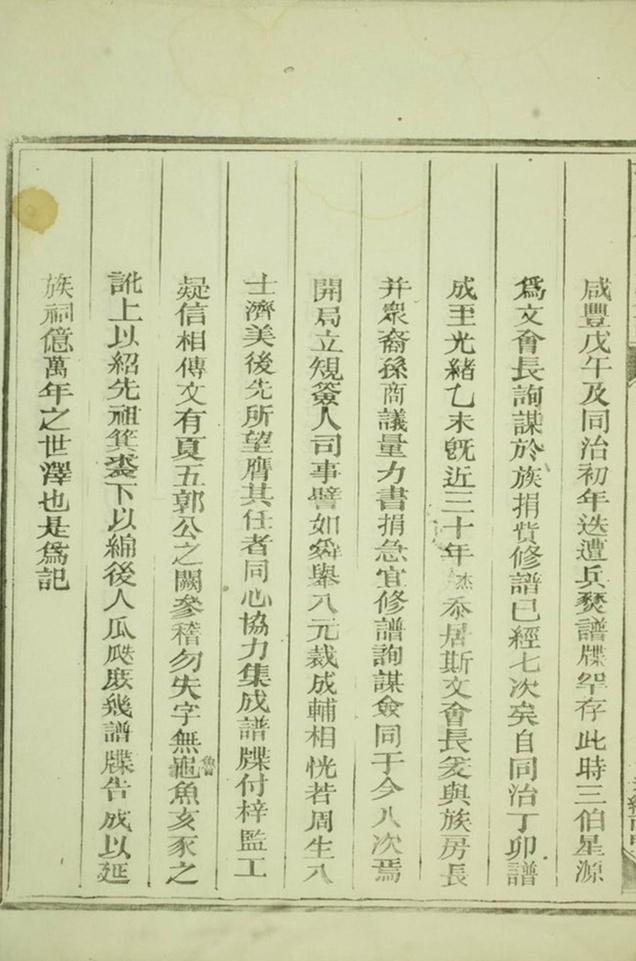 咸豐戊午及同治初年迭遭兵燹譜牒罕存此時三伯星源
爲文會長詢謀於族捐貲修譜已經七次矣自同治丁卯譜
成至光緒乙未旣近三十年杰忝居斯文會長爰與族房長
并衆裔孫商議量力書捐急宜修譜詢謀僉同于今八次焉
開局立規簽人司事譬如舜舉八元裁成輔相恍若周生八
士濟美後先所望膺其任者同心協力集成譜牒付梓監工
疑信相傳文有夏五郭公之闕參稽勿失字無魚魯亥豕之
訛上以紹先祖箕裘下以綿後人瓜瓞庶幾譜牒告成以延
族祠億萬年之世澤也是爲記